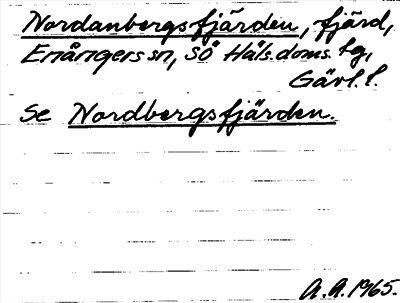 Nordanbergsfjärden, fjärd,
Enångers sn, SÖ Häls. doms. tg,
Gävl. l.
Se Nordbergsfjärden.
A.A. 1965.